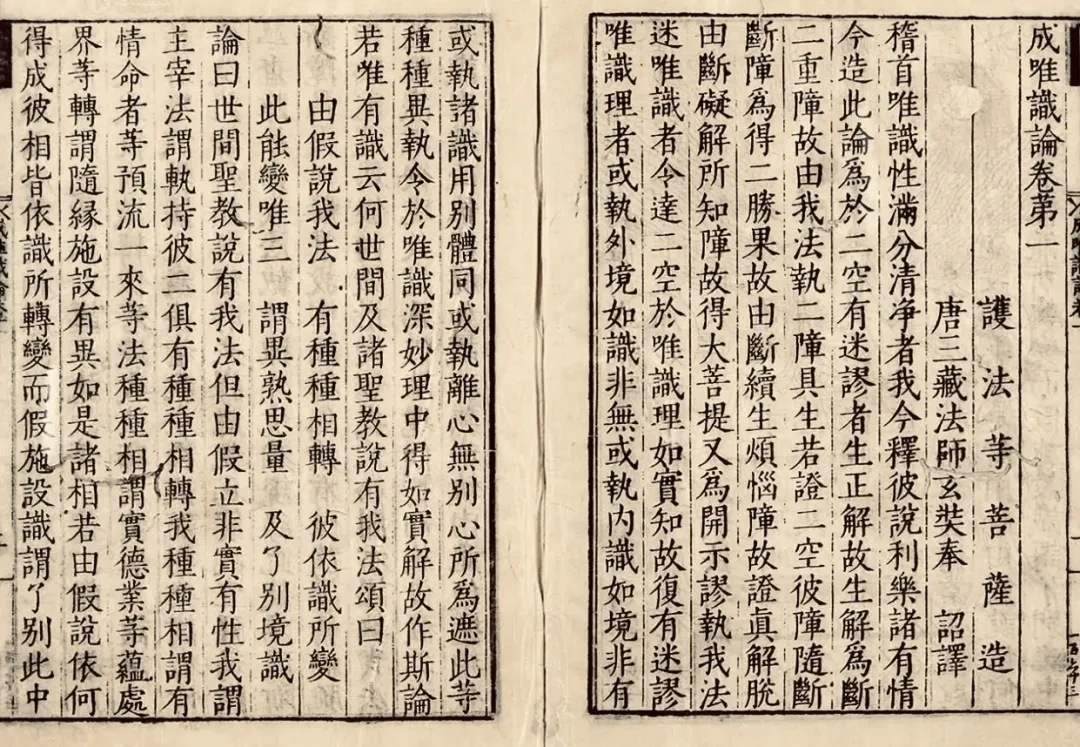 成唯識論卷苐一
護法等菩薩造
唐三藏法師玄奘奉　詔譯
稽首唯識性滿分清淨者我今釋彼說利樂諸有情
今造此論爲於二空有迷謬者生正解故生解爲斷
二重障故由我法執二障具生若證二空彼障隨斷
斷障爲得二勝果故由斷續生煩惱障故證眞解脫
由斷礙解所知障故得大菩提又爲開示謬執我法
迷唯識者令達二空於唯識理如實知故復有迷謬
唯識理者或執外境如識非無或執內識如境非有
或執諸識用別體同或執離心無別心所爲遮此等
種種異執令於唯識深妙理中得如實解故作斯論
若唯有識云何世間及諸聖教說有我法頌曰
由假說我法　有種種相轉　彼依識所變
此能變唯三　謂異熟思量　及了別境識
論曰世間聖教說有我法但由假立非實有性我謂
主宰法謂軌持彼二俱有種種相轉我種種相謂有
情命者等預流一來等法種種相謂實德業等蘊處
界等轉謂隨緣施設有異如是諸相若由假說依何
得成彼相皆依識所轉變而假施設識謂了別此中